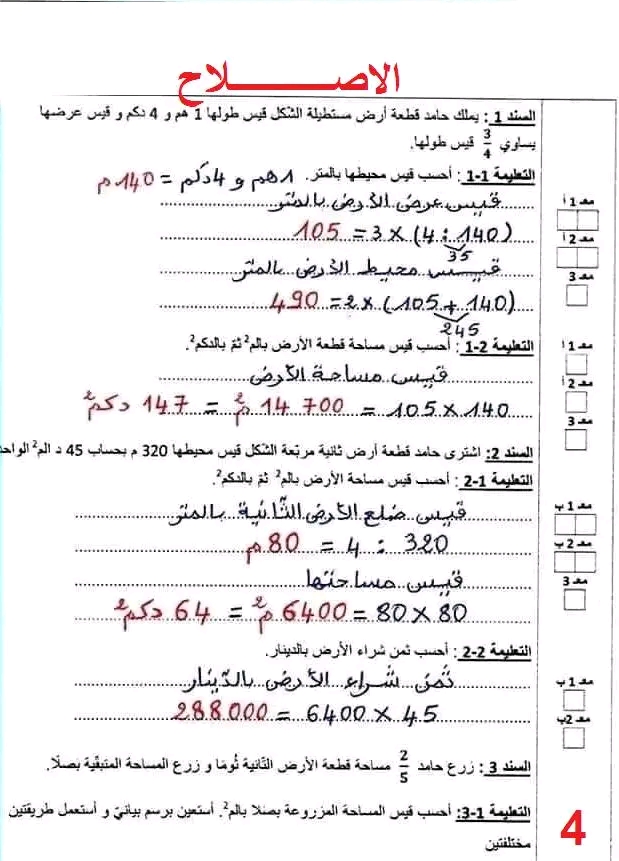 الاصـــــــلاح
السند 1 : يملك حامد قطعة أرض مستطيلة الشّكل قيس طولها 1 هم و 4 دكم و قيس عرضها
يساوي 3/4 قيس طولها.
التعليمة 1-1 : أحسب قيس محيطها بالمتر. 1هم و 4دكم = 140 م
قيس عرض الأرض بالمتر
105 = 3 × (4 : 140)
35
قيس محيط الأرض بالمتر
490 = 2 × (105 + 140)
245
التعليمة 2-1 : أحسب قيس مساحة قطعة الأرض بالم² ثمّ بالدكم².
قيس مساحة الأرض
147 دكم² = 14 700 م² = 105 × 140
السند 2: اشترى حامد قطعة أرض ثانية مربّعة الشّكل قيس محيطها 320 م بحساب 45 د الم² الواحد
التعليمة 1-2 : أحسب قيس مساحة الأرض بالم² ثمّ بالدكم².
قيس ضلع الأرض الثّانية بالمتر
80 م = 4 : 320
قيس مساحتها
64 دكم² = 6400 م² = 80 × 80
التعليمة 2-2 : أحسب ثمن شراء الأرض بالدينار.
ثمن شراء الأرض بالدّينار
288000 = 6400 × 45
السند 3 : زرع حامد 2/5 مساحة قطعة الأرض الثّانية ثومًا و زرع المساحة المتبقّية بصلًا.
التعليمة 1-3: أحسب قيس المساحة المزروعة بصلا بالم². أستعين برسم بيانيّ و أستعمل طريقتين
مختلفتين
مع 1 أ
مع 2 أ
مع 3
مع 1 أ
مع 2 أ
مع 3
مع 1 ب
مع 2 ب
مع 3
مع 1 ب
مع 2ب
4